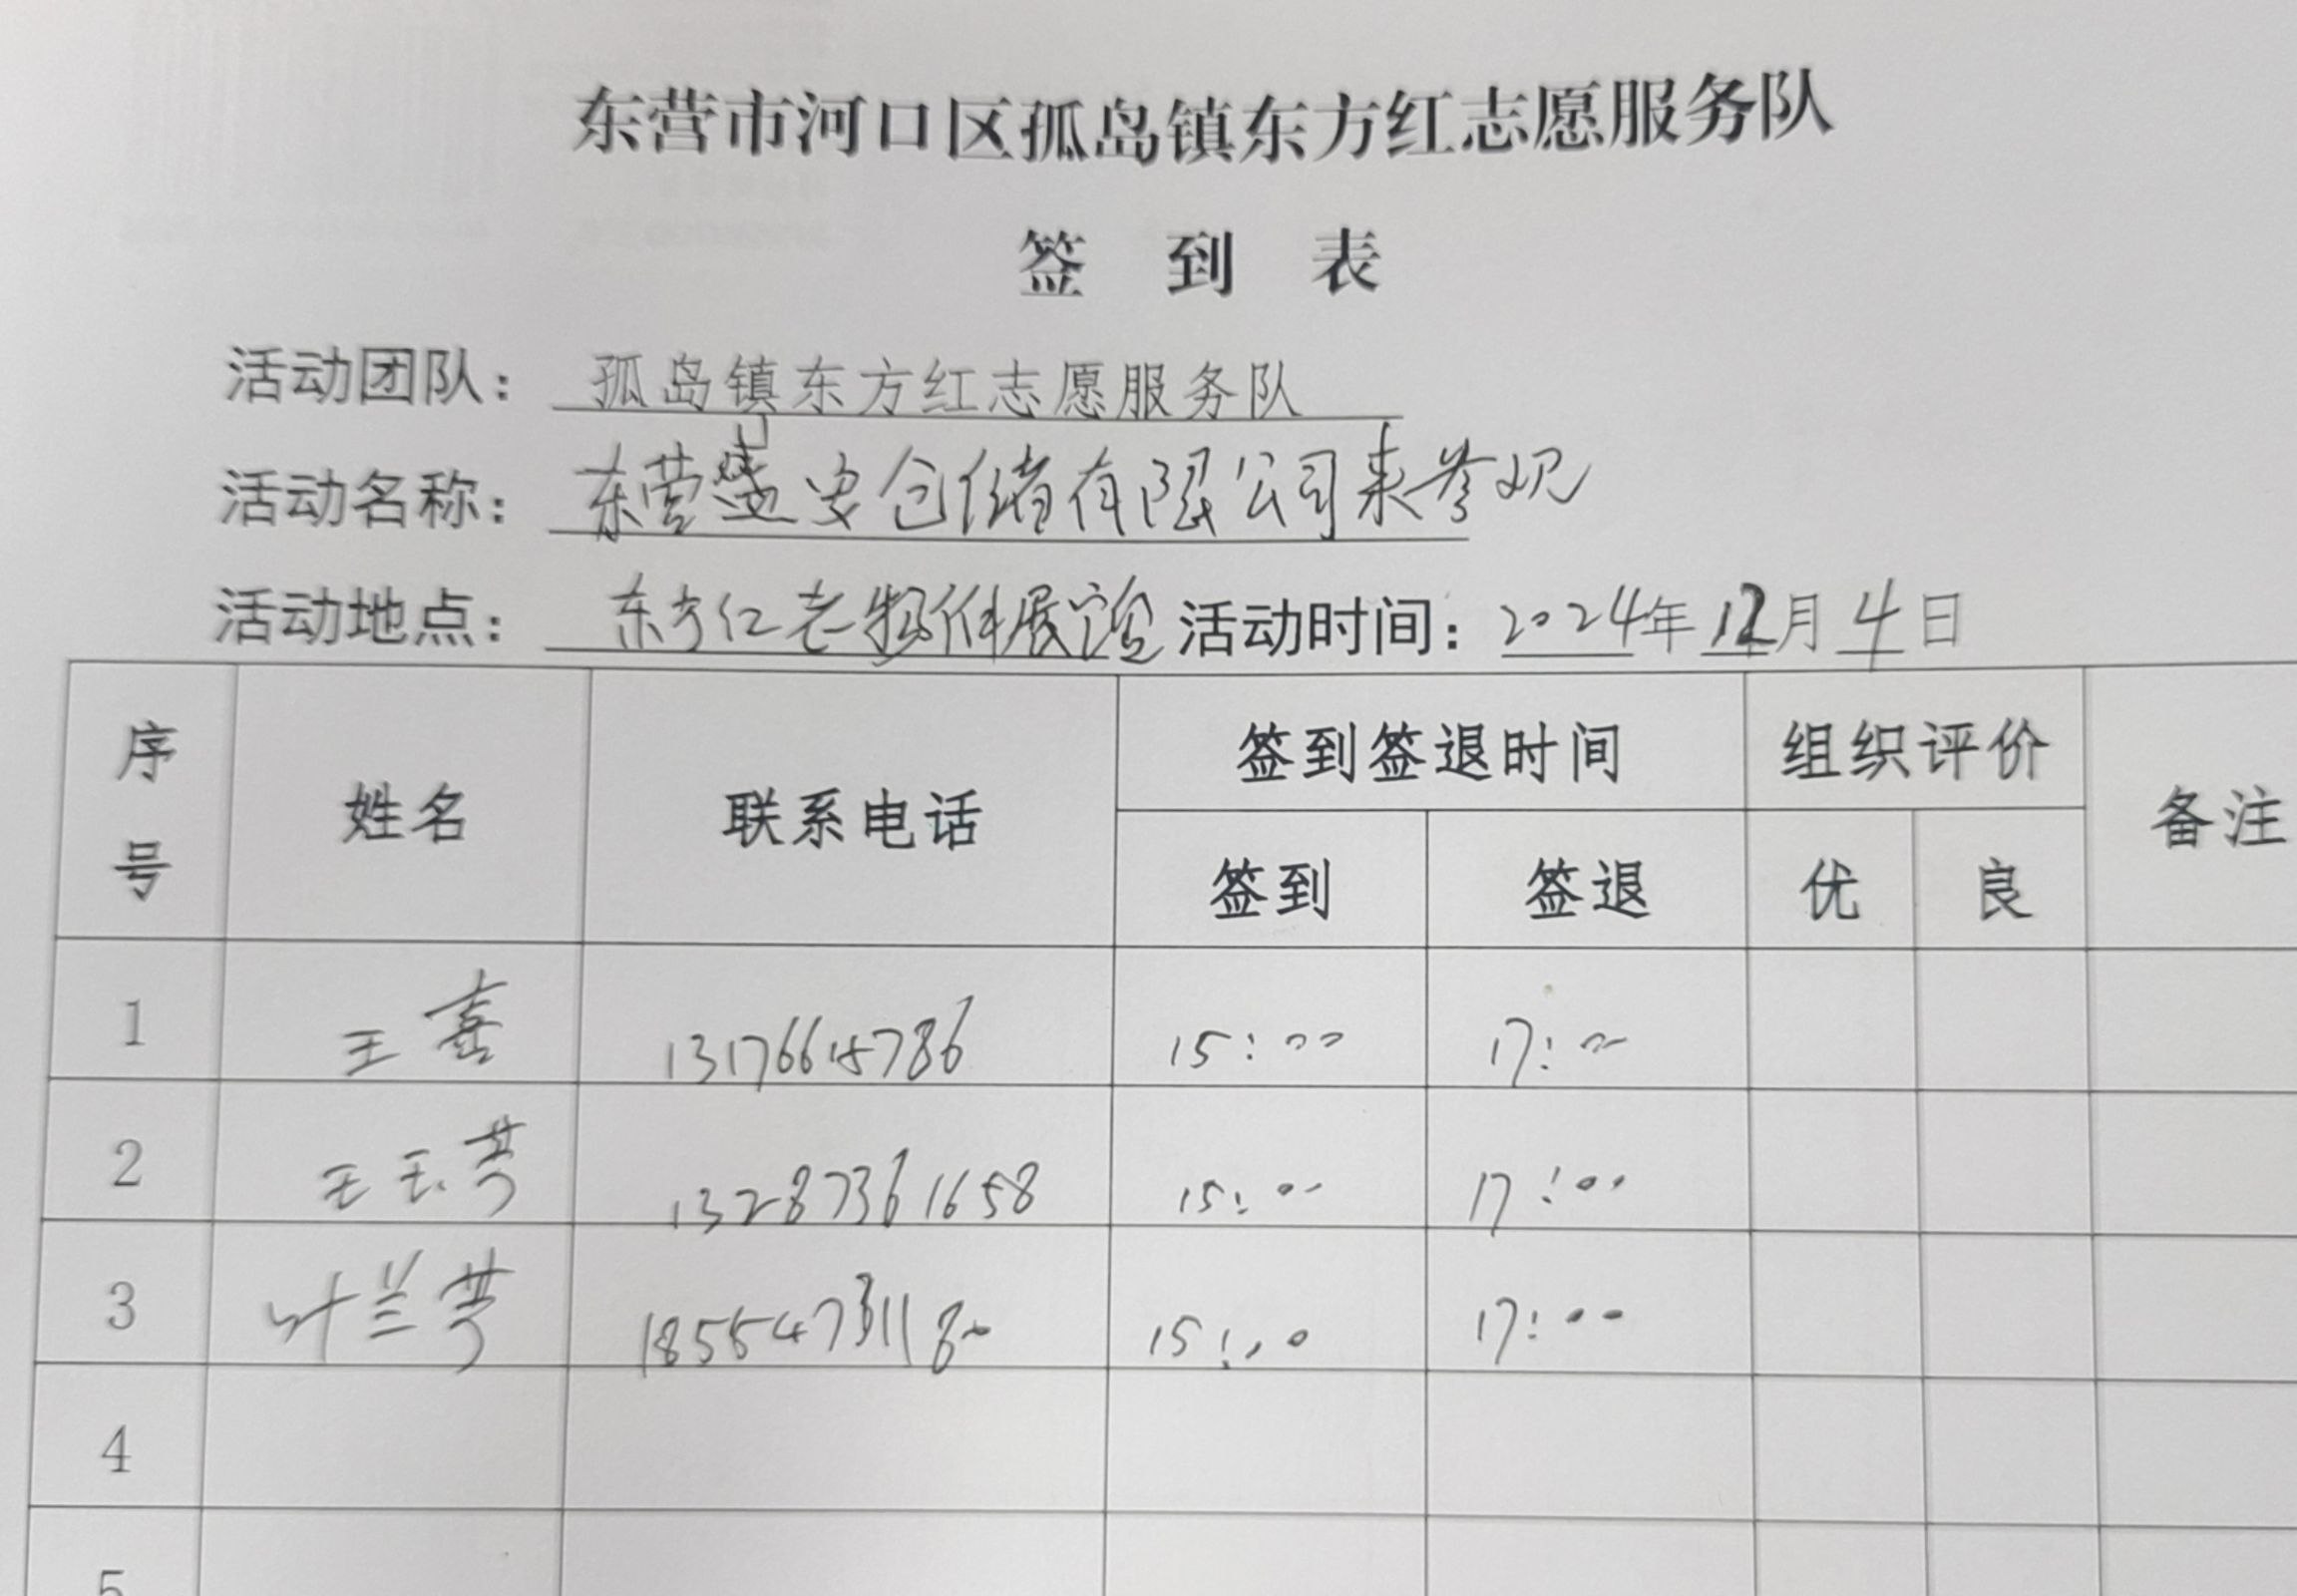 东营市河口区孤岛镇东方红志愿服务队
签到表
活动团队：孤岛镇东方红志愿服务队
活动名称：东营 安仓储有限公司来参观
活动地点：东方红老物件展览 活动时间：2024年12月4日
序号 姓名 联系电话 签到签退时间 组织评价 备注
签到 签退 优 良
1 王喜 13176615786 15:00 17:00
2 王玉芳 13287361658 15:00 17:00
3 叶兰芳 18554731180 15:00 17:00
4
5